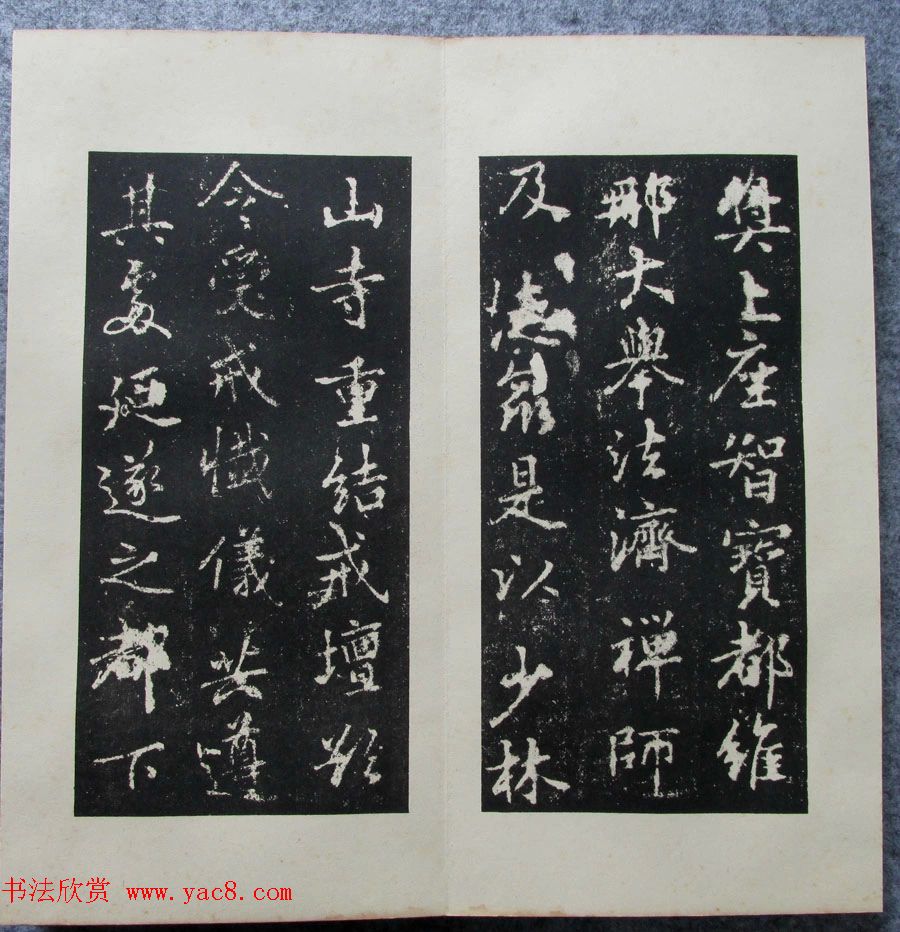 奬上座智寶都維
那大舉法濟禪師
及德衆是以少林
山寺重結戒壇欲
令受戒懺儀共遵
其處迺遂之都下
书法欣赏 www.yac8.com